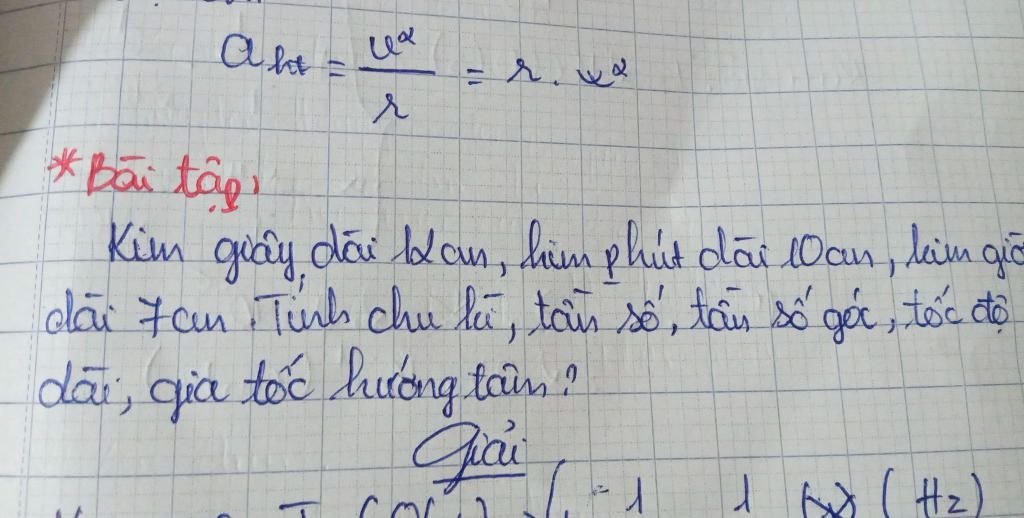 a ht = v² / r = r . ω²
* Bài tập:
Kim giây dài 12cm, kim phút dài 10cm, kim giờ
dài 7cm. Tính chu kì, tần số, tần số góc, tốc độ
dài, gia tốc hướng tâm?
Giải
= 1 1 (Hz)